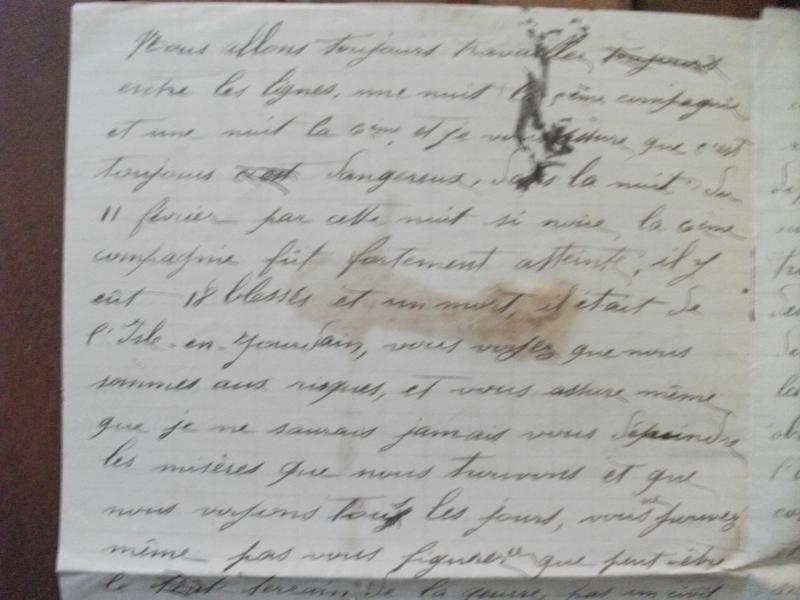 Nous allons toujours travailler toujours
entre les lignes, une nuit la 5ème compagnie
et une nuit la 6ème, et je vous assure que c'est
toujours c'est dangereux, dans la nuit du
11 février par cette nuit si noire la 6ème
compagnie fût fortement atteinte, il y
eût 18 blessés et un mort, il était de
l'Isle-en-Jourdain, vous voyez que nous
sommes aux risques, et vous assure même
que je ne saurais jamais vous dépeindre
les misères que nous trouvons et que
nous voyons tous les jours, vous ne pouvez
même pas vous figurer que peut-être
le terrain de la guerre, pas un